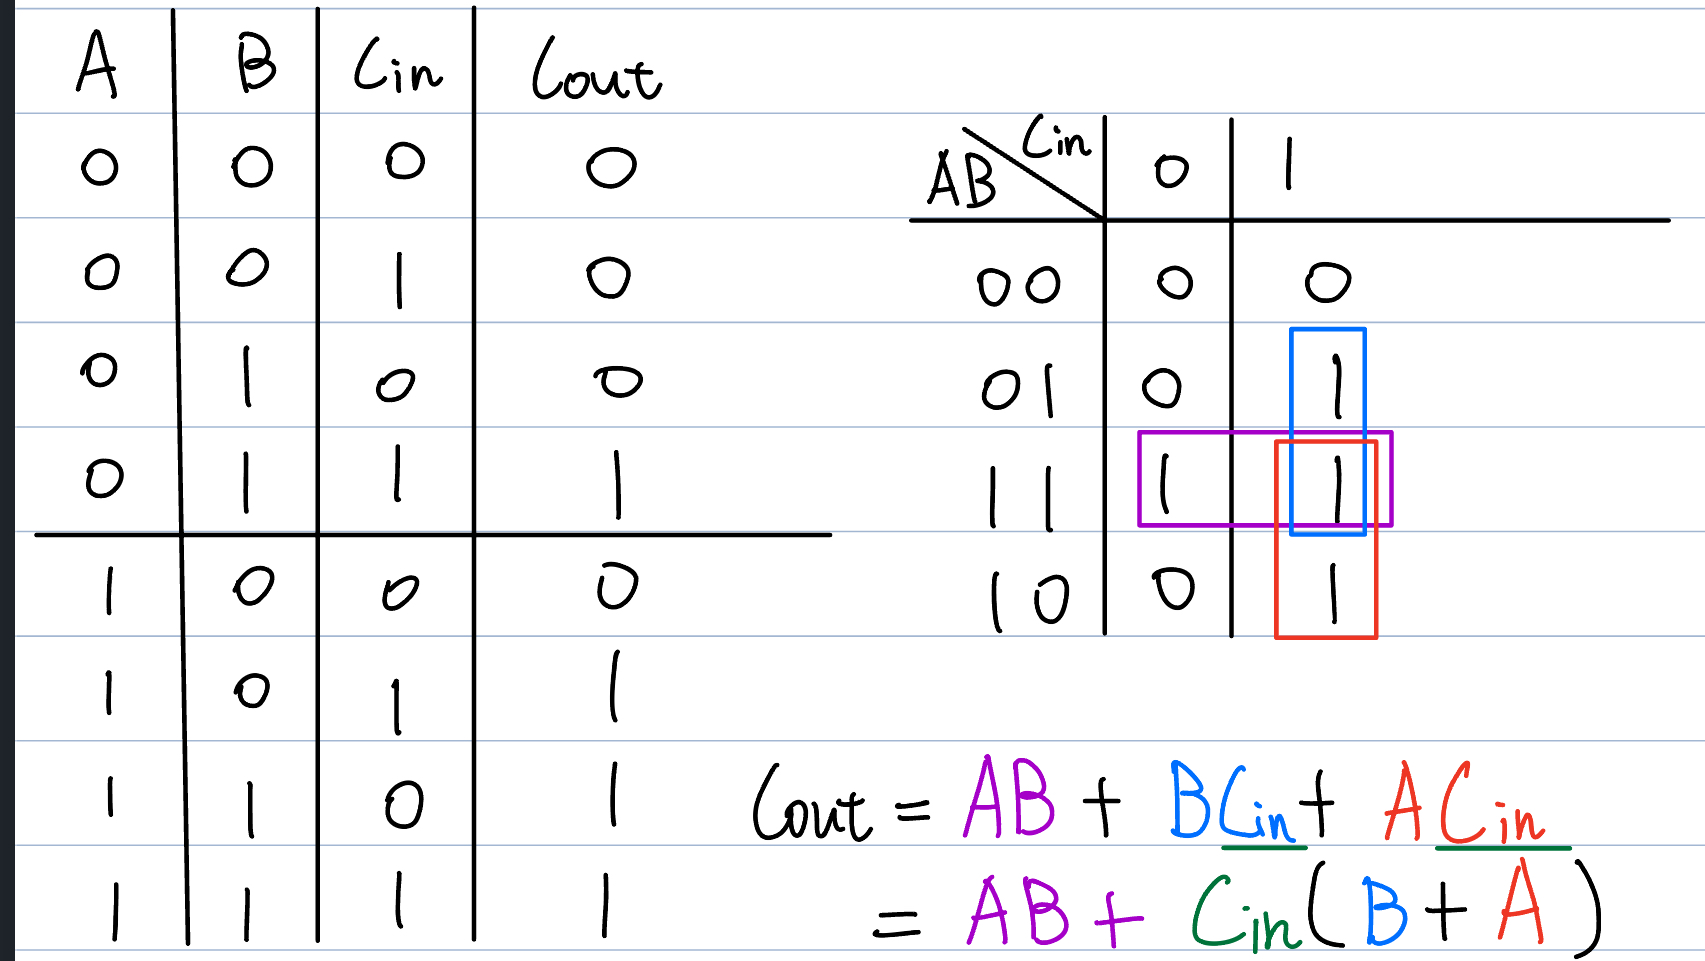 A B Cin Cout
0 0 0 0
0 0 1 0
0 1 0 0
0 1 1 1
1 0 0 0
1 0 1 1
1 1 0 1
1 1 1 1
AB Cin 0 1
00 0 0
01 0 1
11 1 1
10 0 1
Cout = AB + BCin + ACin
= AB + Cin(B + A)